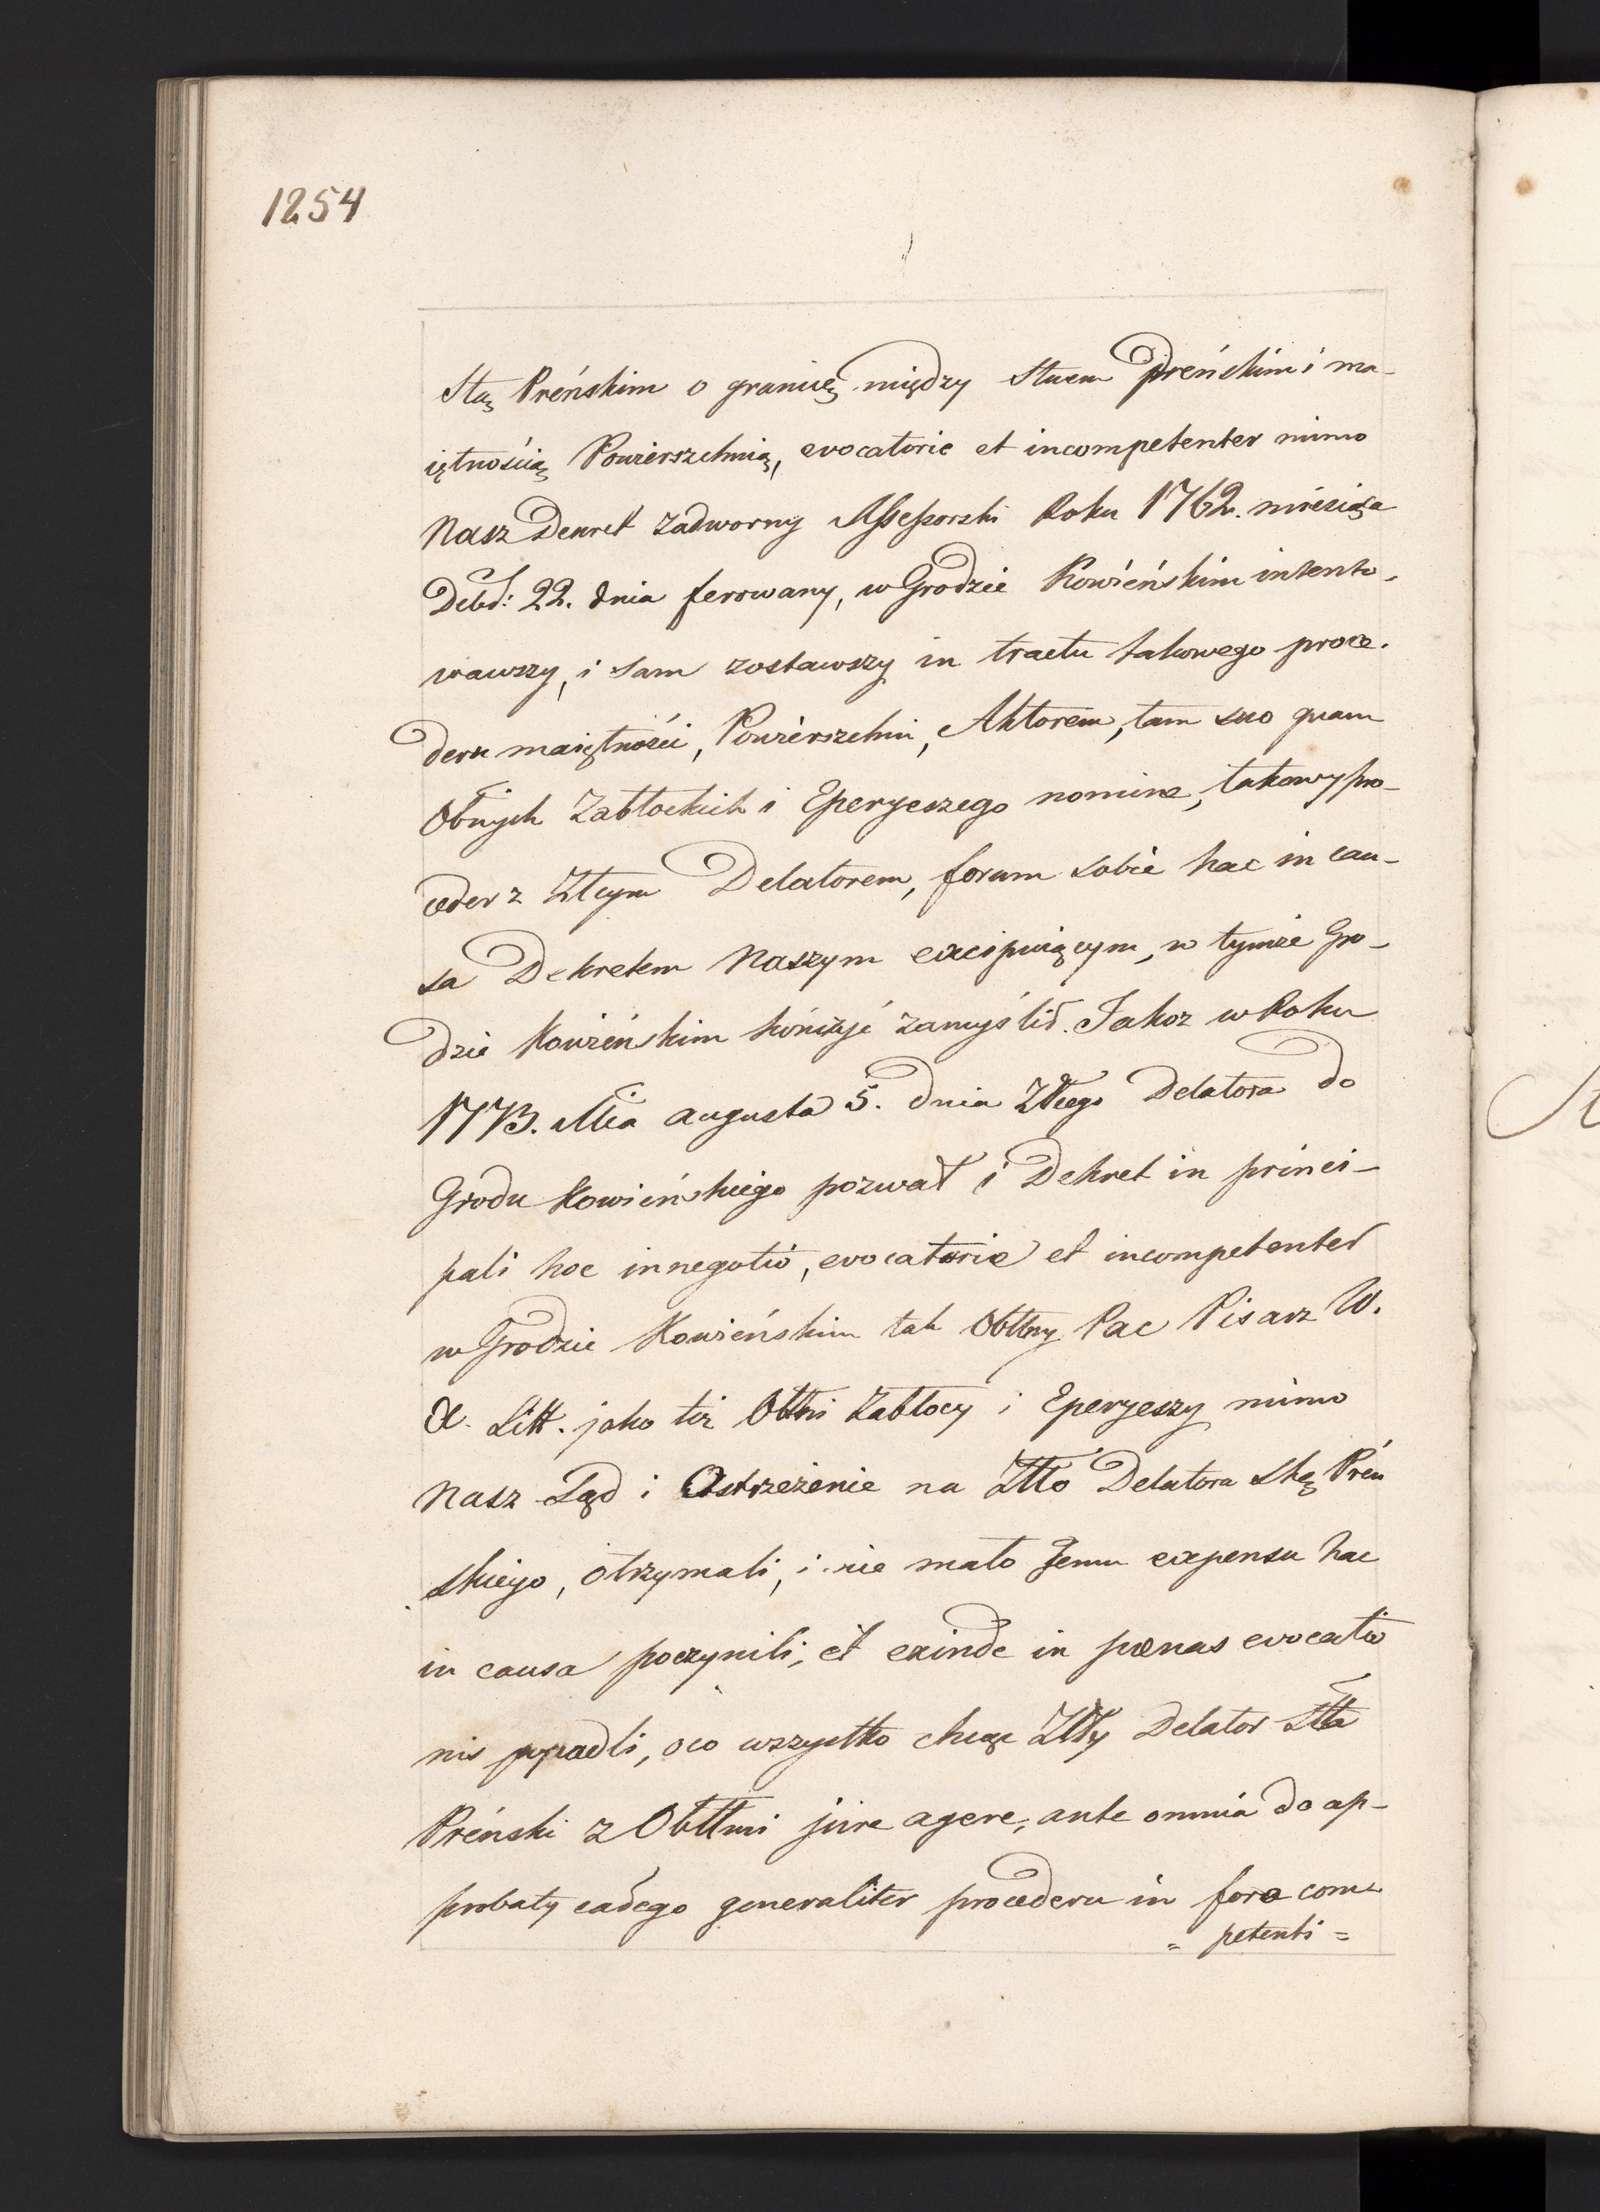 1254
Stą Preńskim o granicę między Stwem Preńskim i ma-
iętnością Powierszchnią, evocatorie et incompetenter mimo
Nasz Dekret Zadworny Assessorski Roku 1762. miesiąca
Debd: 22. dnia ferowany, w Grodzie Kowieńskim intento-
wawszy, i sam zostawszy in tractu takowego proce-
deru maiętności, Powierszchni, Aktorem, tam suo quam
Obnych Zabłockich i Eperyeszego nomine, takowy pro-
ceder z Żłcym Delatorem, forum sobie hac in cau-
sa Dekretem Naszym excipuiącym, w tymże Gro-
dzie Kowieńskim kończyć zamyślił. Jakoz w Roku
1773. Mca augusta 5. dnia Żłcego Delatora do
Grodu Kowieńskiego pozwał i Dekret in princi-
pali hoc in negotio, evocatorie et incompetenter
w Grodzie Kowieńskim tak Obttny Pac Pisarz W.
X. Litt. jako też Obttni Zabłocy i Eperyeszy mimo
Nasz Sąd i Ostrzeżenie na Żłło Delatora Stę Preń
skiego, otrzymali, i nie mało Jemu expensu hac
in causa poczynili, et exinde in pænas evocatio
nis popadli, oco wszystko chcąc Żłły Delator Stta
Preński z Obttmi jure agere, ante omnia do ap-
probaty całego generaliter procederu in foro com-
= petenti =